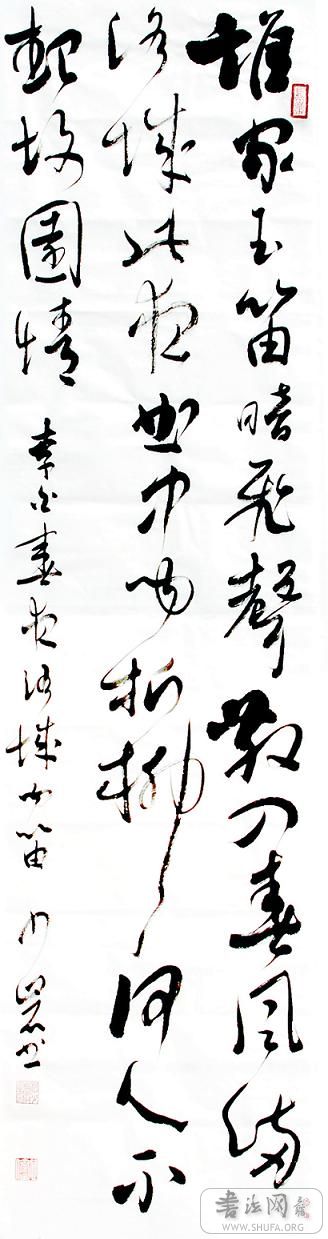 誰家玉笛暗飛聲散入春風滿
洛城此夜曲中聞折柳何人不
起故園情
李白春夜洛城聞笛
书法网
WWW.SHUFA.ORG